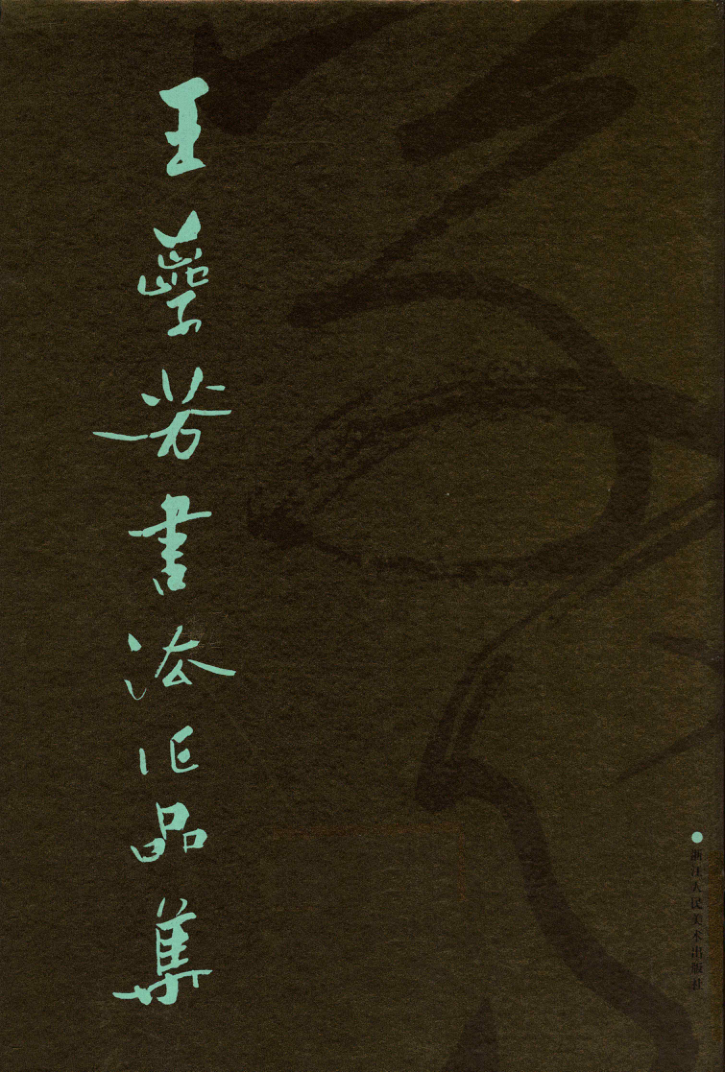 王書法作品集
浙江人民美术出版社